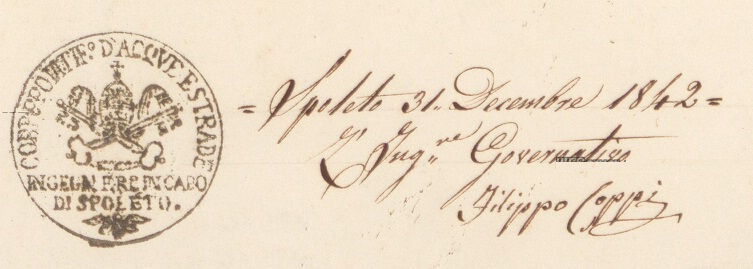 CORPO PONTIF.º D'ACQVE E STRADE
INGEGNERE IN CAPO
DI SPOLETO.
= Spoleto 31. Decembre 1842 =
L'Ing.re Governativo
Filippo Coppi